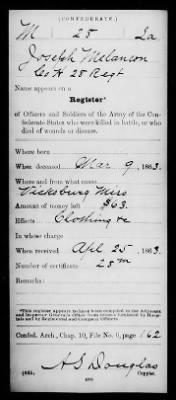 (CONFEDERATE.)
M 28 La
Joseph Melanson
Co H 28 Regt
Name appears on a
Register*
of Officers and Soldiers of the Army of the Con-
federate States who were killed in battle, or who
died of wounds or disease.
Where born
When deceased Mar 9, 1863
Where and from what cause
Vicksburg Miss
Amount of money left $63.
Effects Clothing &c
In whose charge
When received Apl 25, 1863.
Number of certificate 25
Remarks:
*This register appears to have been compiled in the Adjutant
and Inspector General's Office from returns furnished by Hospi-
tals and by Regimental and Company Officers.
Confed. Arch., Chap. 10, File No. 6, page 162
A S Douglas
Copyist.